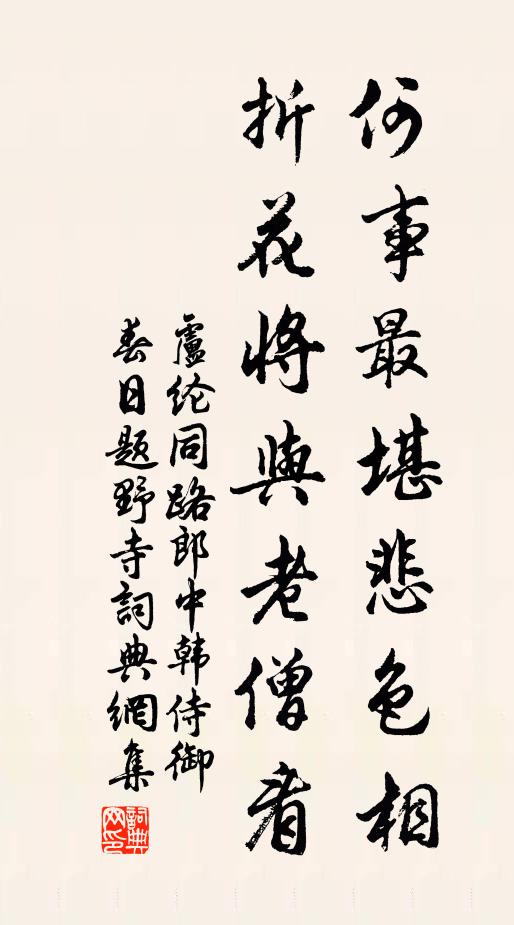 何事最堪悲色相
折花將與老僧看
盧纶同路郎中韩侍御
春日题野寺詞典網集
詞典
网印